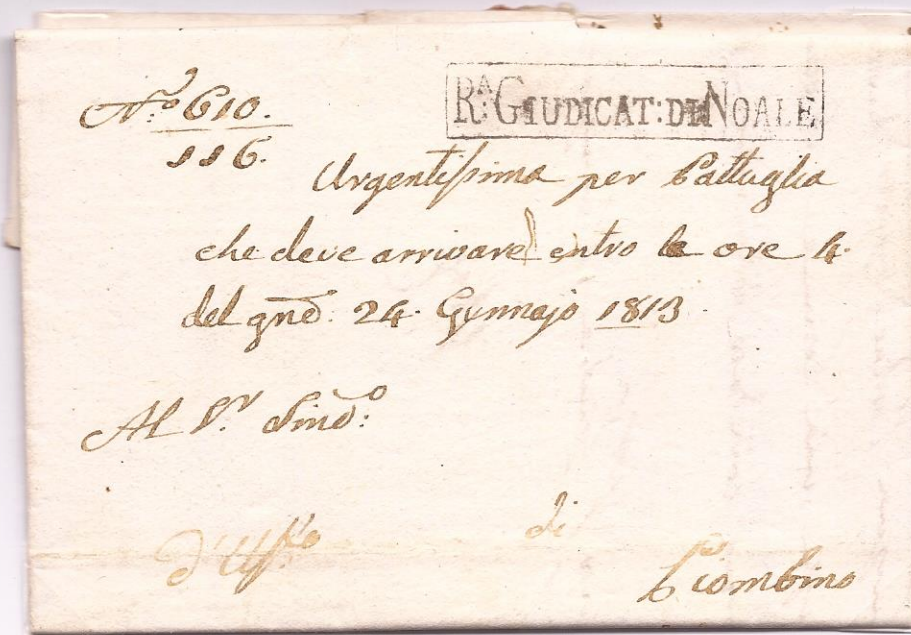 N.º 610.
116.
R.A: GIUDICAT: DI NOALE
Urgentissima per Pattuglia
che deve arrivare entro le ore 4.
del gñe 24. Gennajo 1813.
Al S.r Sind.o:
d'Uff.o di
Piombino